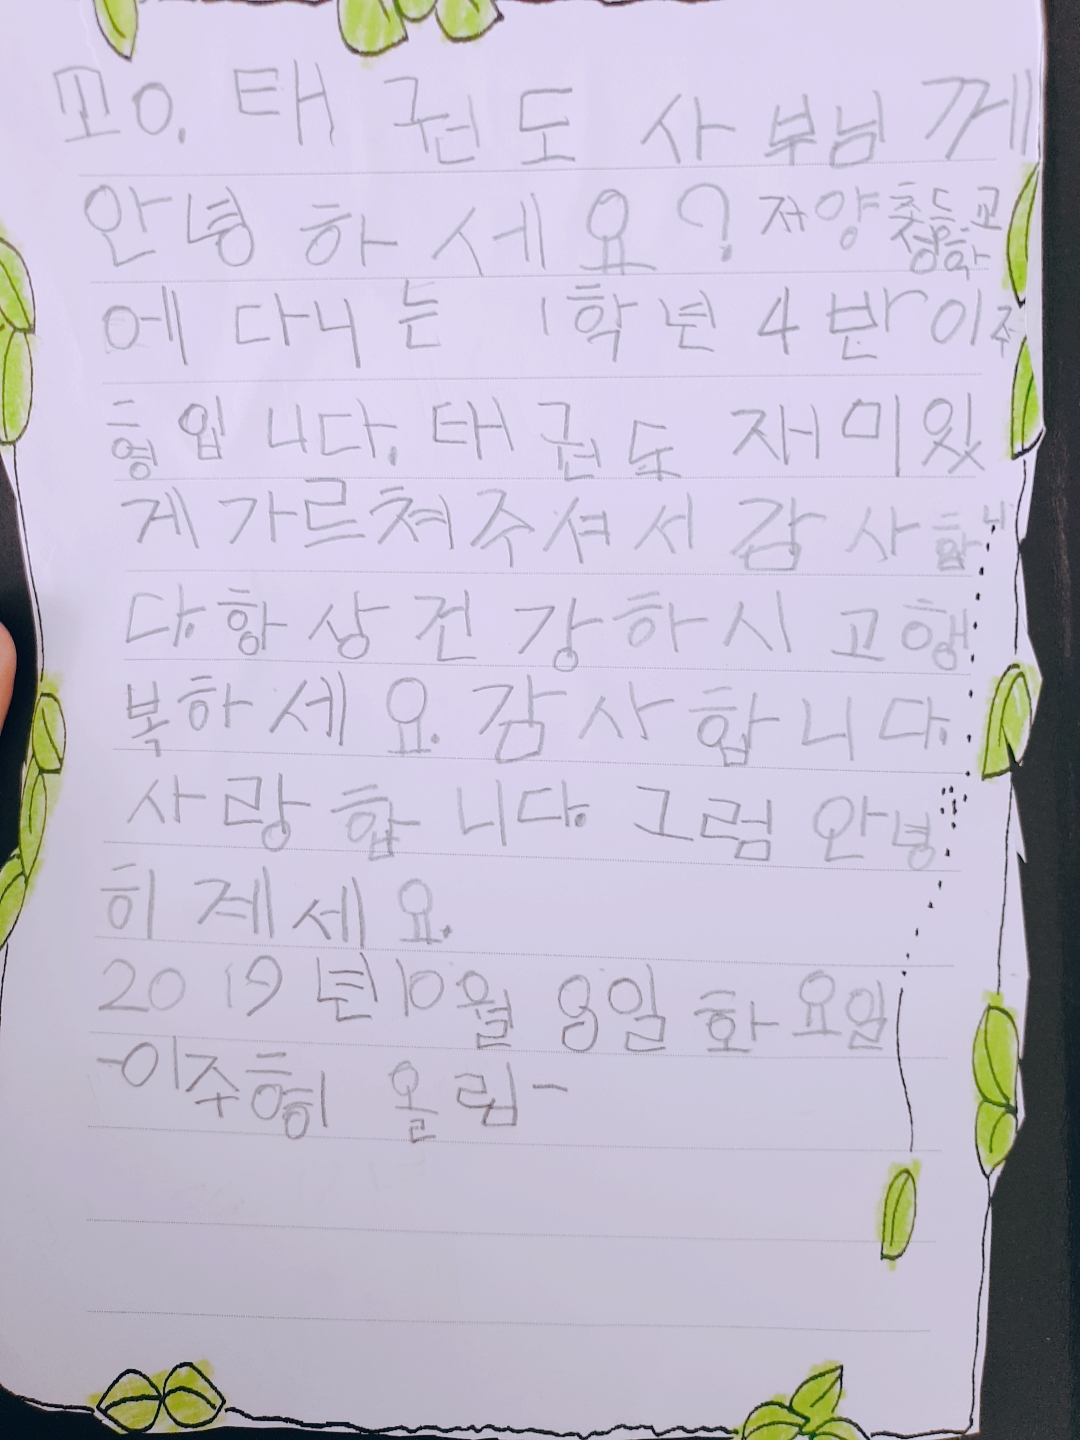 태권도 사부님께
안녕하세요? 저 양 초등학교
에 다니는 1학년 4반 이주
형입니다. 태권도 재미있
게 가르쳐주셔서 감사합니
다. 항상 건강하시고 행
복하세요. 감사합니다.
사랑합니다. 그럼 안녕
히 계세요.
2019년 10월 8일 화요일
-이주형이 올림-